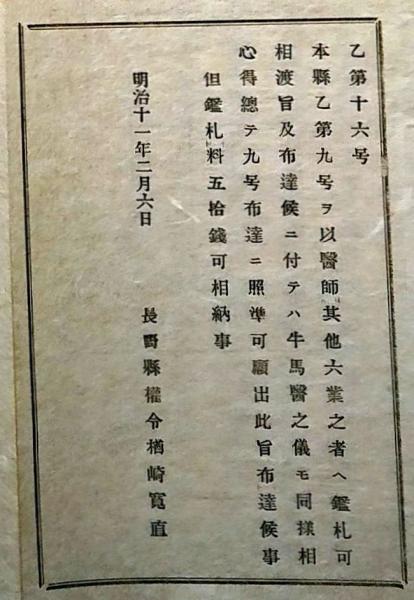 乙第十六号
本縣乙第九号ヲ以醫師其他六業之者ヘ鑑札可
相渡旨及布達候ニ付テハ牛馬醫之儀モ同様相
心得總テ九号布達ニ照凖可願出此旨布達候事
但鑑札料五拾錢可相納事
明治十一年二月六日
長野縣權令楢崎寛直